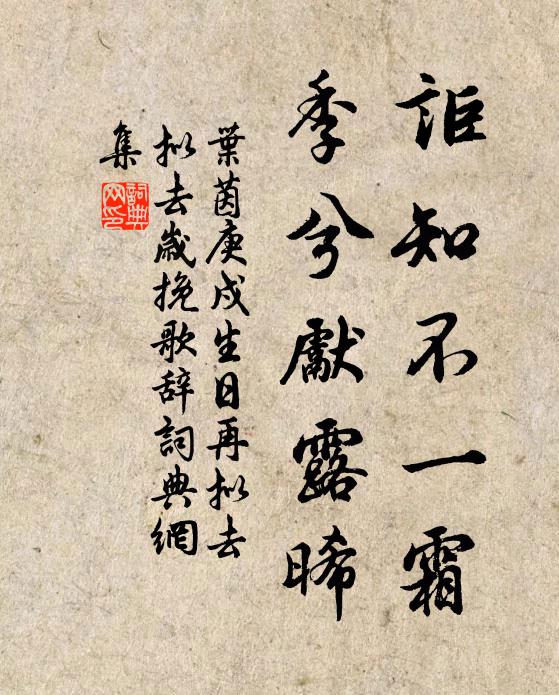 詎知不一霜
季兮獻露晞
葉茵庚戌生日再拟去
拟去歲挽歌辞詞典網
集
詞典
网印